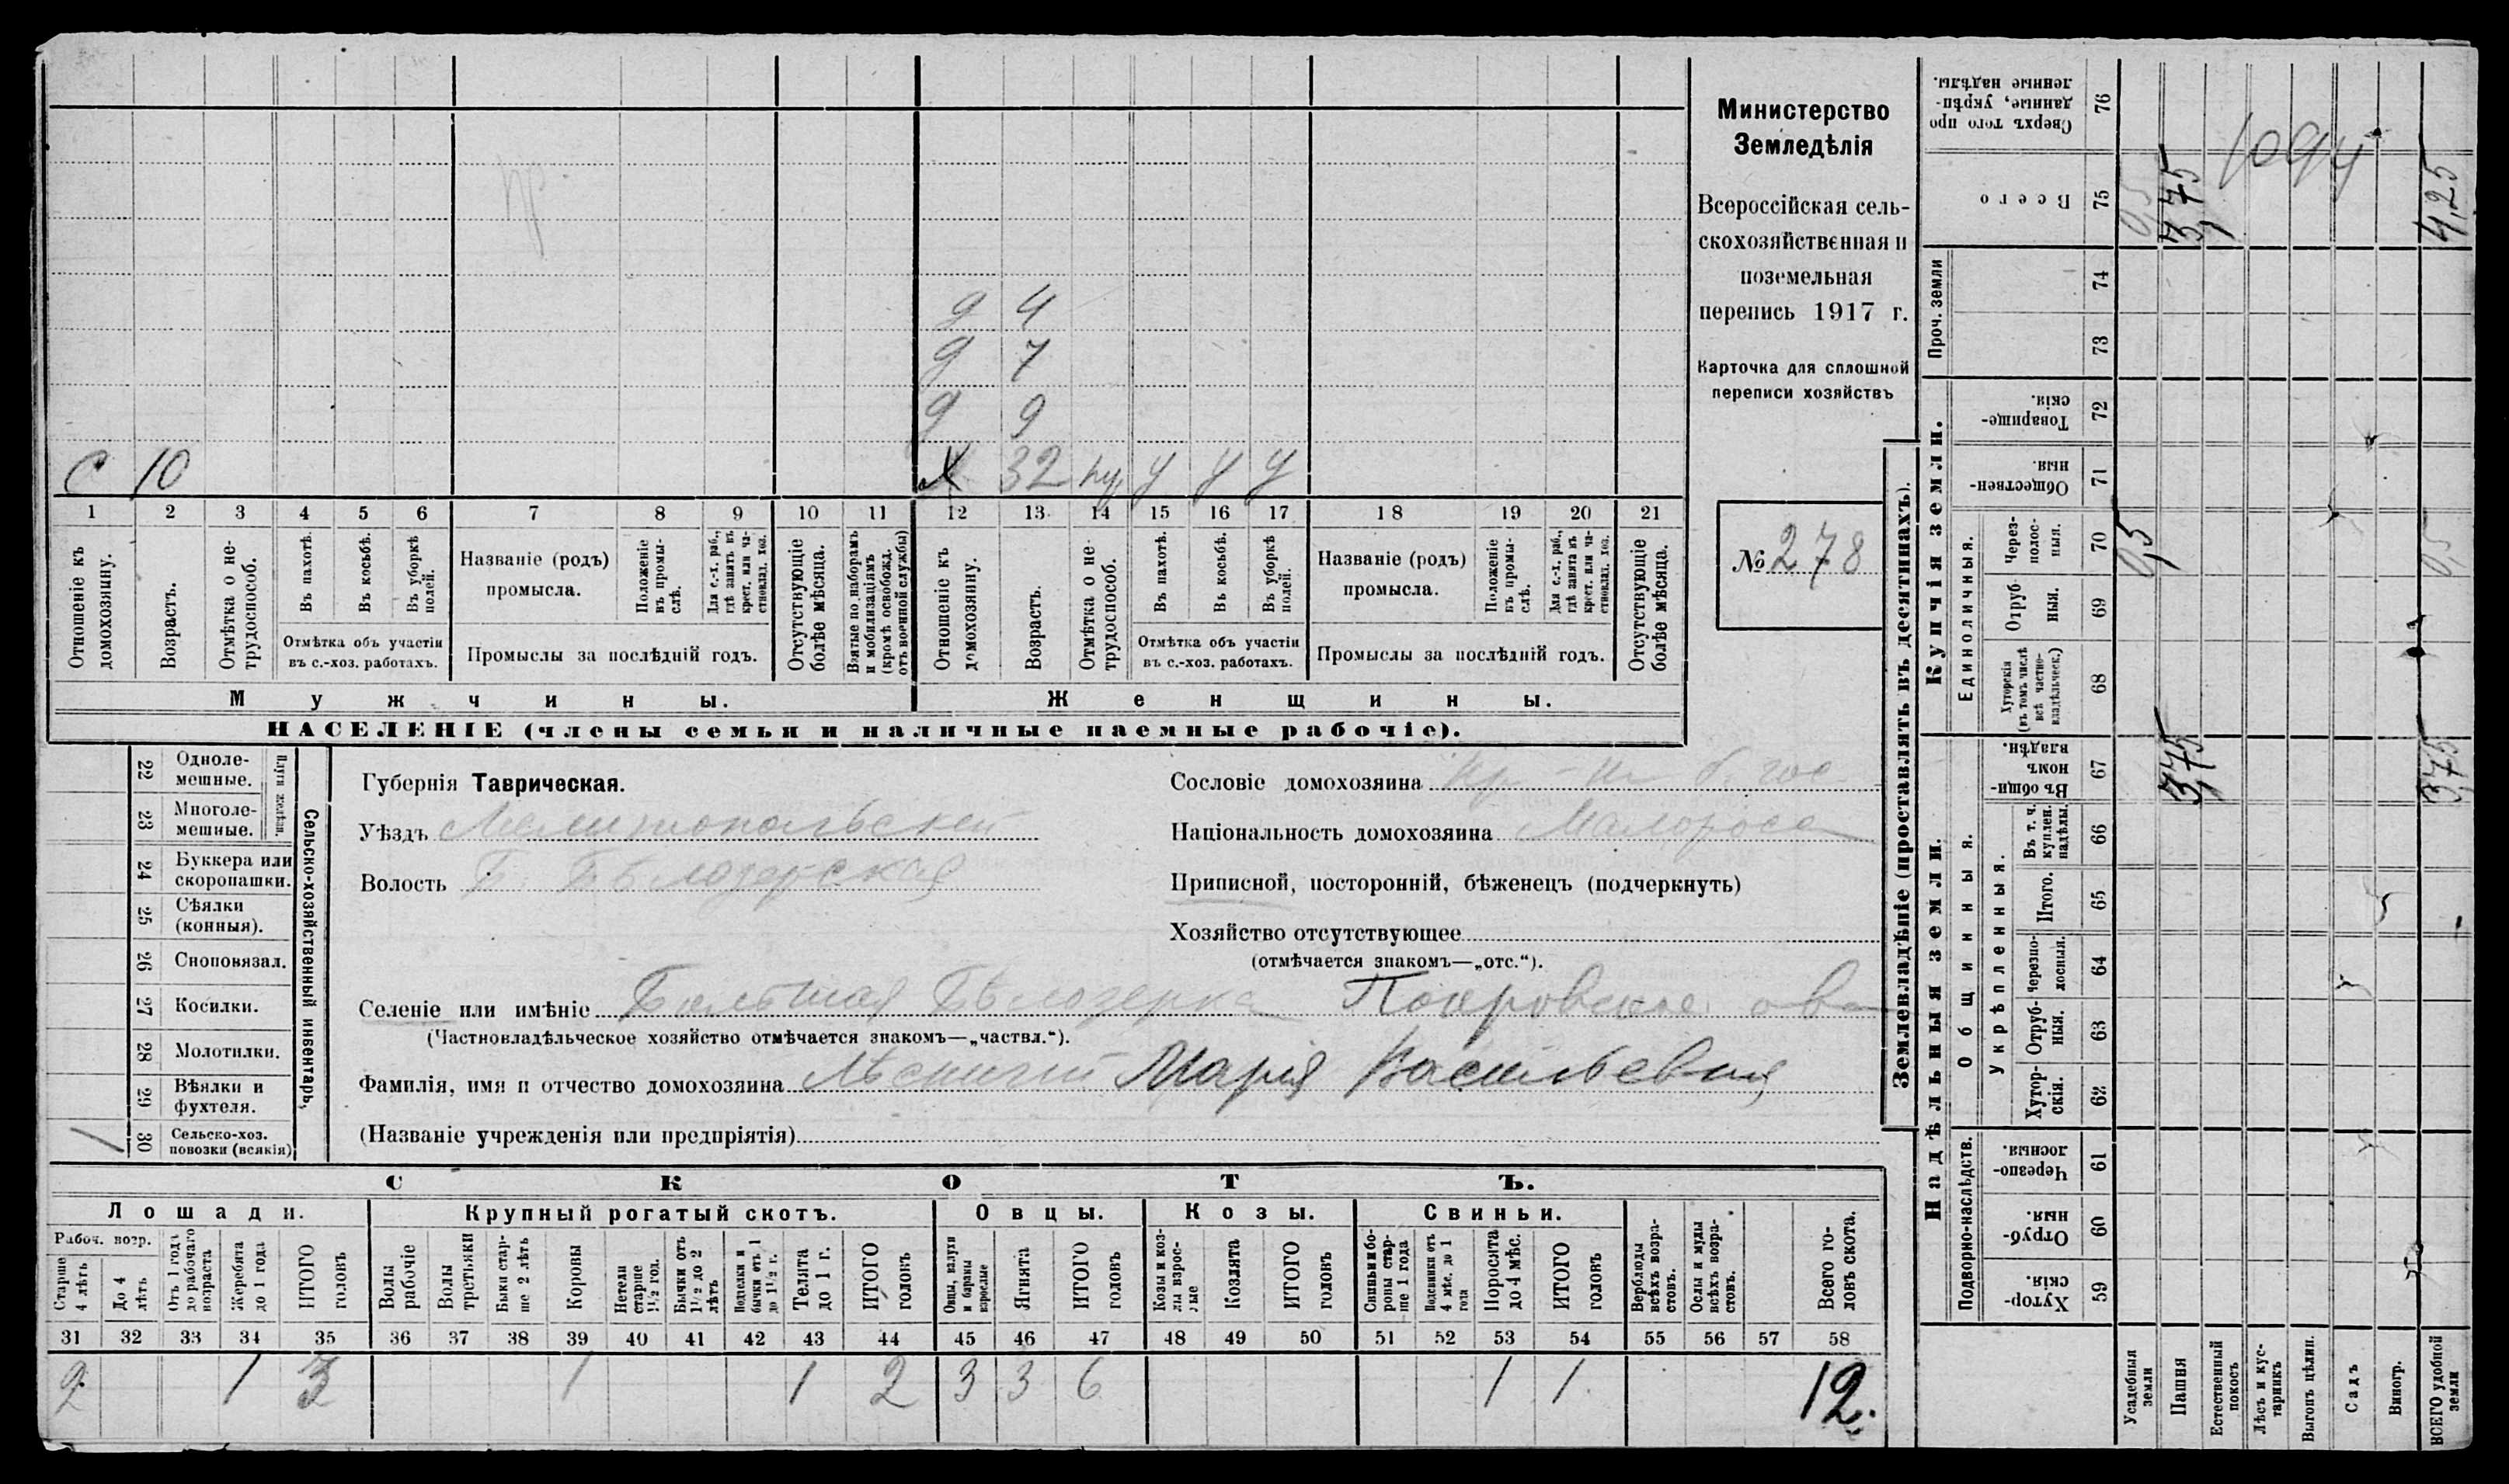 Министерство
Земледѣлія
Всероссійская сель-
скохозяйственная и
поземельная
перепись 1917 г.
Карточка для сплошной
переписи хозяйствъ
№ 278
д 4
д 7
д 9
с 10
х 32 ну у у у
1 2 3 4 5 6 7 8 9 10 11 12 13 14 15 16 17 18 19 20 21
Отношеніе къ домохозяину.
Возрастъ.
Отмѣтка о не-трудоспособ.
Въ пахотѣ.
Въ косьбѣ.
Въ уборкѣ полей.
Отмѣтка объ участіи
въ с.-хоз. работахъ.
Названіе (родъ)
промысла.
Положеніе въ промы-слѣ.
Для с.-х. раб., гдѣ занятъ въ крест. или ча-стновлад. хоз.
Промыслы за послѣдній годъ.
Отсутствующіе болѣе мѣсяца.
Взятые по наборамъ и мобилизаціямъ (кромѣ освобожд. отъ военной службы)
Отношеніе къ домохозяину.
Возрастъ.
Отмѣтка о не-трудоспособ.
Въ пахотѣ.
Въ косьбѣ.
Въ уборкѣ полей.
Отмѣтка объ участіи
въ с.-хоз. работахъ.
Названіе (родъ)
промысла.
Положеніе въ промы-слѣ.
Для с.-х. раб., гдѣ занята въ крест. или ча-стновлад. хоз.
Промыслы за послѣдній годъ.
Отсутствующіе болѣе мѣсяца.
Мужчины.
Женщины.
НАСЕЛЕНІЕ (члены семьи и наличные наемные рабочіе).
Сельско-хозяйственный инвентарь.
Плуги желѣзн.
22 Одноле-мешные.
23 Многоле-мешные.
24 Буккера или скоропашки.
25 Сѣялки (конныя).
26 Сноповязал.
27 Косилки.
28 Молотилки.
29 Вѣялки и фухтеля.
1 30 Сельско-хоз. повозки (всякія)
Губернія Таврическая.
Уѣздъ Мелитопольскій
Волость Б. Бѣлозерская
Сословіе домохозяина Кр-нъ б. гос
Національность домохозяина Малоросс
Приписной, посторонній, бѣженецъ (подчеркнуть)
Хозяйство отсутствующее
(отмѣчается знакомъ—„отс.“).
Селеніе или имѣніе Большая Бѣлозерка Покровское о-во
(Частновладѣльческое хозяйство отмѣчается знакомъ—„частвл.“).
Фамилія, имя и отчество домохозяина Марія Васильевна
(Названіе учрежденія или предпріятія)
СКОТЪ.
Лошади.
Крупный рогатый скотъ.
Овцы.
Козы.
Свиньи.
Рабоч. возр.
Старше 4 лѣтъ
До 4 лѣтъ
Отъ 1 года до рабочаго возраста
Жеребята до 1 года
ИТОГО головъ
Волы рабочіе
Волы третьяки
Быки стар-ше 2 лѣтъ
Коровы
Нетели старше 1½ год.
Бычки отъ 1½ до 2 лѣтъ
Подтелки и бычки отъ 1 до 1½ г.
Телята до 1 г.
ИТОГО головъ
Овцы, валухи и бараны взрослые
Ягнята
ИТОГО головъ
Козы и коз-лы взрос-лые
Козлята
ИТОГО головъ
Свиньи и бо-ровы стар-ше 1 года
Подсвинки отъ 4 мѣс. до 1 года
Поросята до 4 мѣс.
ИТОГО головъ
Верблюды всѣхъ возра-стовъ.
Ослы и мулы всѣхъ возра-стовъ.
Всего го-ловъ скота.
31 32 33 34 35 36 37 38 39 40 41 42 43 44 45 46 47 48 49 50 51 52 53 54 55 56 57 58
2 1 3 1 1 2 3 3 6 1 1 12.
Землевладѣніе (проставлять въ десятинахъ).
Надѣльныя земли.
Купчія земли.
Проч. земли
Подворно-наслѣдств.
Общинныя.
Укрѣпленныя.
Единоличныя.
Сверхъ того про-данные, укрѣп-ленные надѣлы. 76
Всего 75
74
73
Товарище-скія. 72
Обществен-ныя. 71
Через-полос-ныя. 70
Отруб-ныя. 69
Хуторскія (въ томъ числѣ всѣ частно-владѣльческ.) 68
Въ общи-номъ владѣн. 67
Въ т. ч. куплен. надѣлы. 66
Итого. 65
Черезпо-лосныя. 64
Отруб-ныя. 63
Хутор-скія. 62
Черезпо-лосныя. 61
Отруб-ныя. 60
Хутор-скія. 59
Усадебныя земли 0,5 0,5
Пашня 3,75 3,75
Естественный покосъ
Лѣсъ и кус-тарникъ
Выгонъ цѣлин.
Садъ
Виногр.
ВСЕГО удобной земли 3,75 0,5 4,25
1094